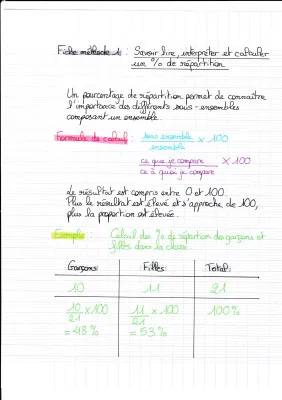 Fiche méthode 1: Savoir lire, interpréter et calculer
un % de répartition.
Un pourcentage de répartition permet de connaître
l'importance des différents sous-ensembles
composant un ensemble.
Formule de calcul: sous ensemble / ensemble × 100
ce que je compare / ce à quoi je compare × 100
Le résultat est compris entre 0 et 100.
Plus le résultat est élevé et s'approche de 100,
plus la proportion est élevée.
Exemple: Calcul des % de répartition des garçons et
filles dans la classe.
Garçons: Filles: Total:
10 11 21
10/21 x100 11/21 x 100 100%
= 48% = 53%